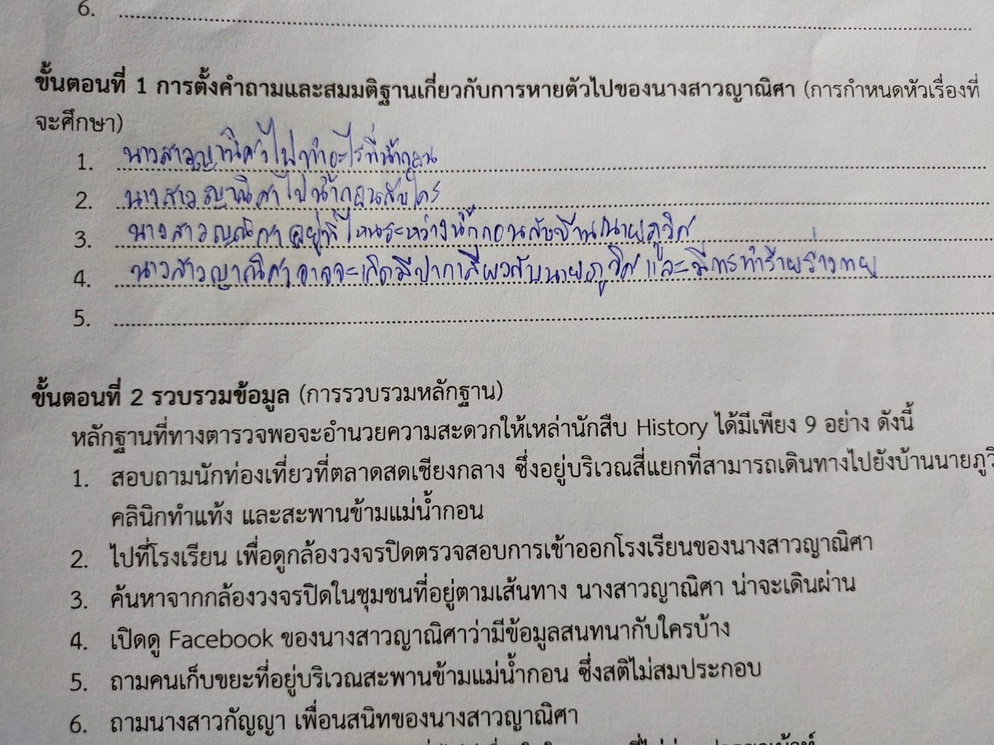 6.
ขั้นตอนที่ 1 การตั้งคำถามและสมมติฐานเกี่ยวกับการหายตัวไปของนางสาวญาณิศา (การกำหนดหัวเรื่องที่
จะศึกษา)
1. นางสาวญาณิศาไปทำอะไรที่น้ำกอน
2. นางสาวญาณิศาไปน้ำกอนกับใคร
3. นางสาวญาณิศาอยู่ที่ไหนระหว่างน้ำกอนกับบ้านนายภูวิศ
4. นางสาวญาณิศาอาจจะเกิดมีปากเสียงกับนายภูวิศและมีการทำร้ายร่างกาย
5.
ขั้นตอนที่ 2 รวบรวมข้อมูล (การรวบรวมหลักฐาน)
หลักฐานที่ทางตารวจพอจะอำนวยความสะดวกให้เหล่านักสืบ History ได้มีเพียง 9 อย่าง ดังนี้
1. สอบถามนักท่องเที่ยวที่ตลาดสดเชียงกลาง ซึ่งอยู่บริเวณสี่แยกที่สามารถเดินทางไปยังบ้านนายภูวิ
คลินิกทำแท้ง และสะพานข้ามแม่น้ำกอน
2. ไปที่โรงเรียน เพื่อดูกล้องวงจรปิดตรวจสอบการเข้าออกโรงเรียนของนางสาวญาณิศา
3. ค้นหาจากกล้องวงจรปิดในชุมชนที่อยู่ตามเส้นทาง นางสาวญาณิศา น่าจะเดินผ่าน
4. เปิดดู Facebook ของนางสาวญาณิศาว่ามีข้อมูลสนทนากับใครบ้าง
5. ถามคนเก็บขยะที่อยู่บริเวณสะพานข้ามแม่น้ำกอน ซึ่งสติไม่สมประกอบ
6. ถามนางสาวกัญญา เพื่อนสนิทของนางสาวญาณิศา